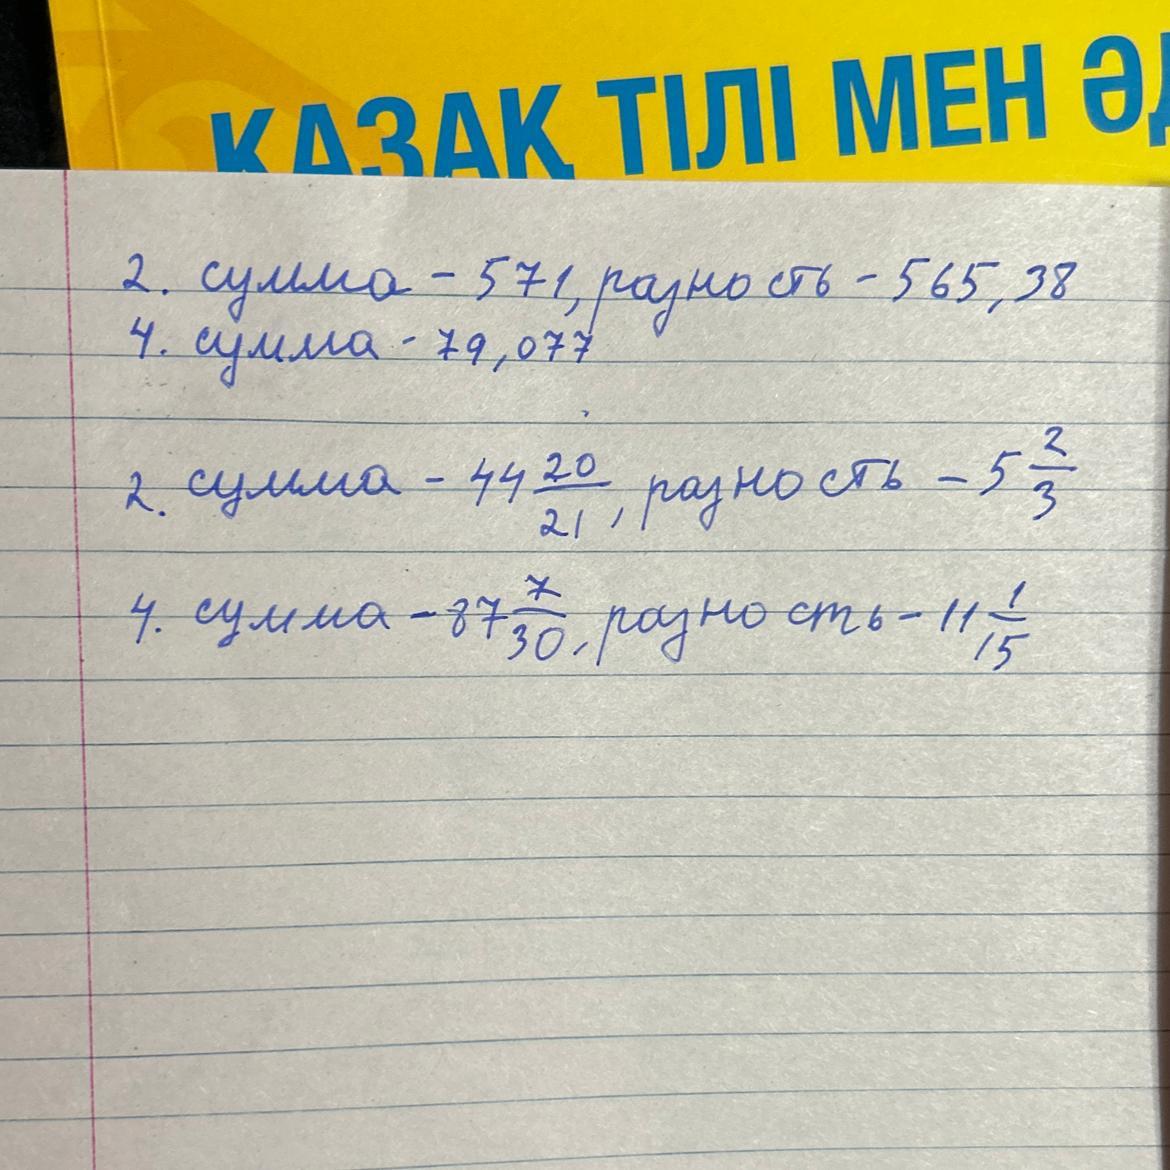 ҚАЗАҚ ТІЛІ МЕН ӘД
2. сумма - 571, разность - 565,38
4. сумма - 79,077
2. сумма - 44 20/21, разность - 5 2/3
4. сумма - 87 7/30, разность - 11 1/15